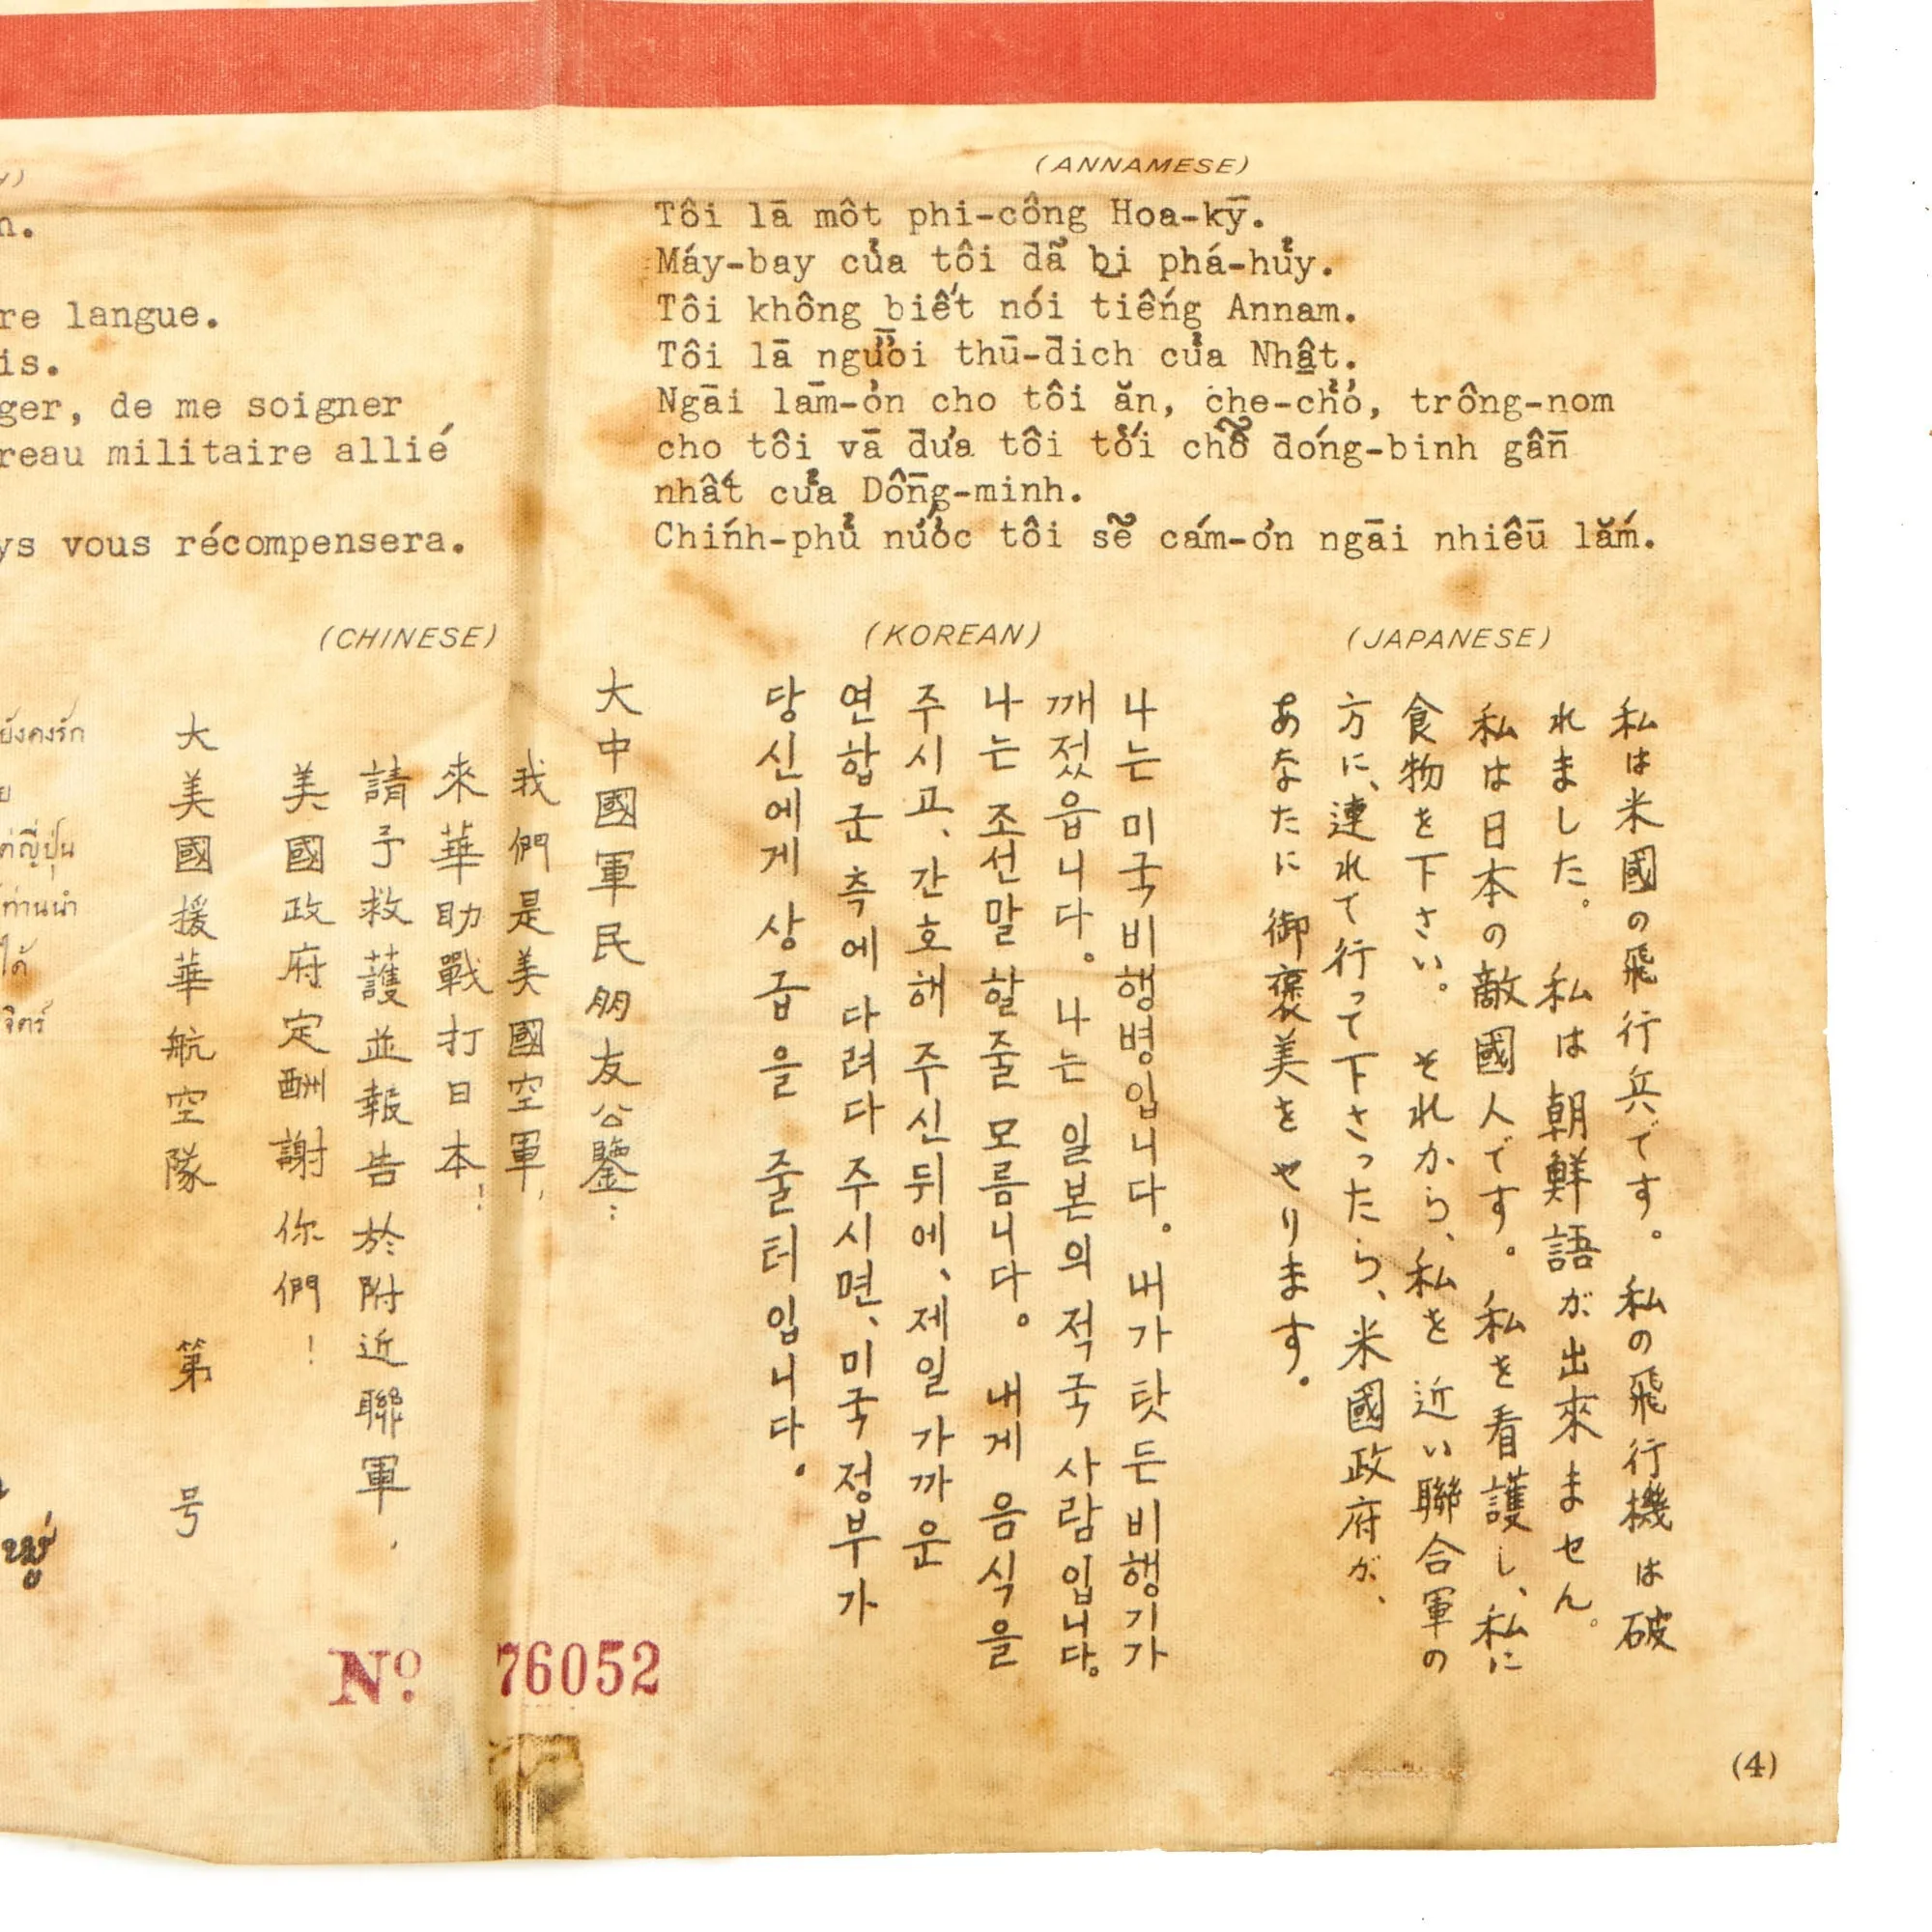 (ANNAMESE)
Tôi lā môt phi-công Hoa-kȳ.
Máy-bay của tôi đã bị phá-hủy.
Tôi không biết nói tiếng Annam.
Tôi lā người thū-đich của Nhật.
Ngāi lām-ơn cho tôi ăn, che-chở, trông-nom
cho tôi vā đưa tôi tới chỗ đóng-binh gần
nhất của Dồng-minh.
Chính-phủ nước tôi sẽ cám-ơn ngāi nhiêū lắm.
n.
re langue.
is.
ger, de me soigner
reau militaire allié
ys vous récompensera.
(CHINESE)
大中國軍民朋友公鑒：
我們是美國空軍，
來華助戰打日本！
請予救護並報告於附近聯軍，
美國政府定酬謝你們！
大美國援華航空隊 第 号
(KOREAN)
나는 미국비행병입니다。내가탓든비행기가
깨젓읍니다。나는 일본의적국사람입니다。
나는조선말할줄모름니다。내게 음식을
주시고、간호해주신뒤에、제일가까운
연합군측에다려다주시면、미국정부가
당신에게상급을 줄터입니다。
(JAPANESE)
私は米國の飛行兵です。私の飛行機は破
れました。私は朝鮮語が出來ません。
私は日本の敵國人です。私を看護し、私に
食物を下さい。それから、私を近い聯合軍の
方に、連れて行って下さったら、米國政府が、
あなたに御褒美をやります。
ยังคงรัก
ต่ญี่ปุ่น
ท่านนำ
ได้
จิตร์
Nº 76052
(4)